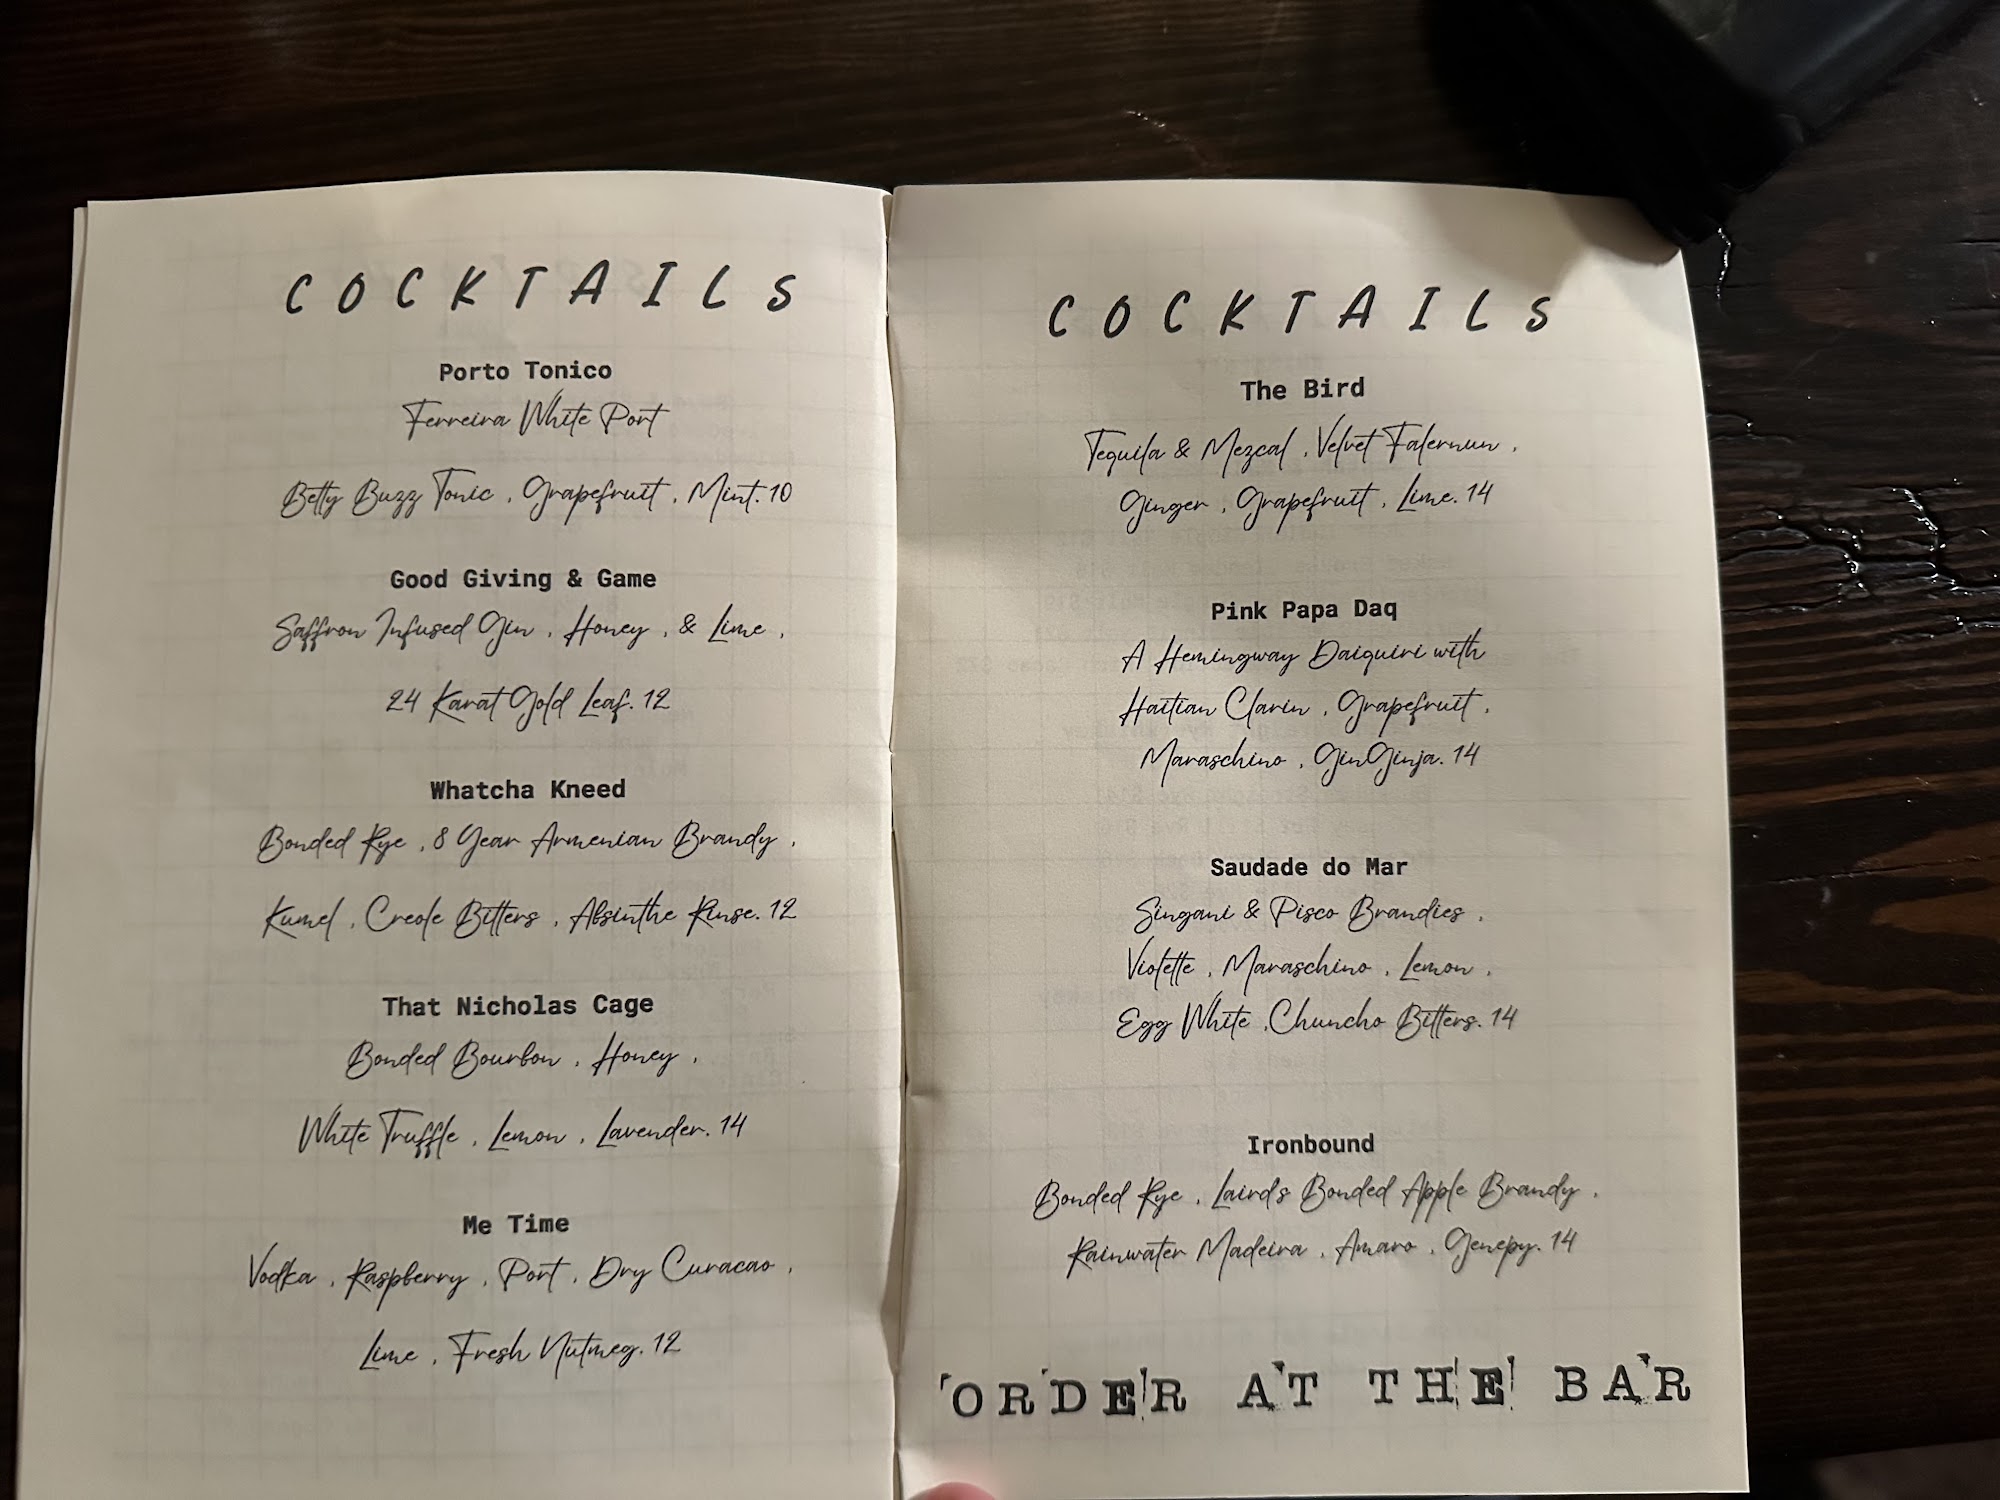 COCKTAILS
Porto Tonico
Ferreira White Port
Betty Buzz Tonic , Grapefruit , Mint. 10
Good Giving & Game
Saffron Infused Gin , Honey , & Lime ,
24 Karat Gold Leaf. 12
Whatcha Kneed
Bonded Rye , 8 Year Armenian Brandy ,
Kumel , Creole Bitters , Absinthe Rinse. 12
That Nicholas Cage
Bonded Bourbon , Honey ,
White Truffle , Lemon , Lavender. 14
Me Time
Vodka , Raspberry , Port , Dry Curacao ,
Lime , Fresh Nutmeg. 12
COCKTAILS
The Bird
Tequila & Mezcal , Velvet Falernun ,
Ginger , Grapefruit , Lime. 14
Pink Papa Daq
A Hemingway Daiquiri with
Haitian Clarin , Grapefruit ,
Maraschino , GinGinja. 14
Saudade do Mar
Singani & Pisco Brandies ,
Violette , Maraschino , Lemon ,
Egg White , Chuncho Bitters. 14
Ironbound
Bonded Rye , Lairds Bonded Apple Brandy ,
Rainwater Madeira , Amaro , Genepy. 14
ORDER AT THE BAR